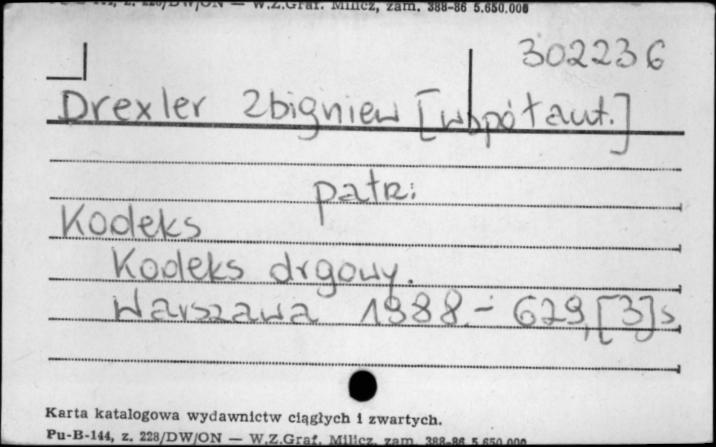 W.Z.Graf. Milicz, zam. 388-86 5.650.000
302236
Drexler Zbigniew [współaut.]
patrz:
Kodeks
Kodeks drgowy.
Warszawa 1988.- 629,[3]s
Karta katalogowa wydawnictw ciągłych i zwartych.
Pu-B-144, z. 228/DW/ON — W.Z.Graf. Milicz, zam. 388-86 5.650.000